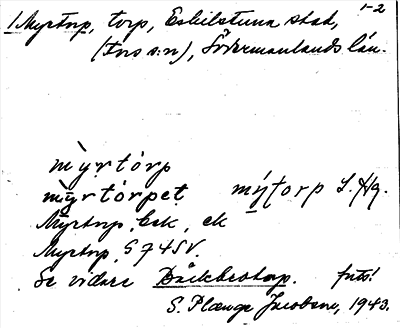 1-2
1 Myrtorp, torp, Eskilstuna stad,
(Fors s:n), Södermanlands län.
myrtorp
myrtorpet mytorp L. Hq.
Myrtorp, Eek, ek
Myrtorp, G74SV.
Se vidare Bäckbrotorp.
S. Plænge Jacobson, 1943.